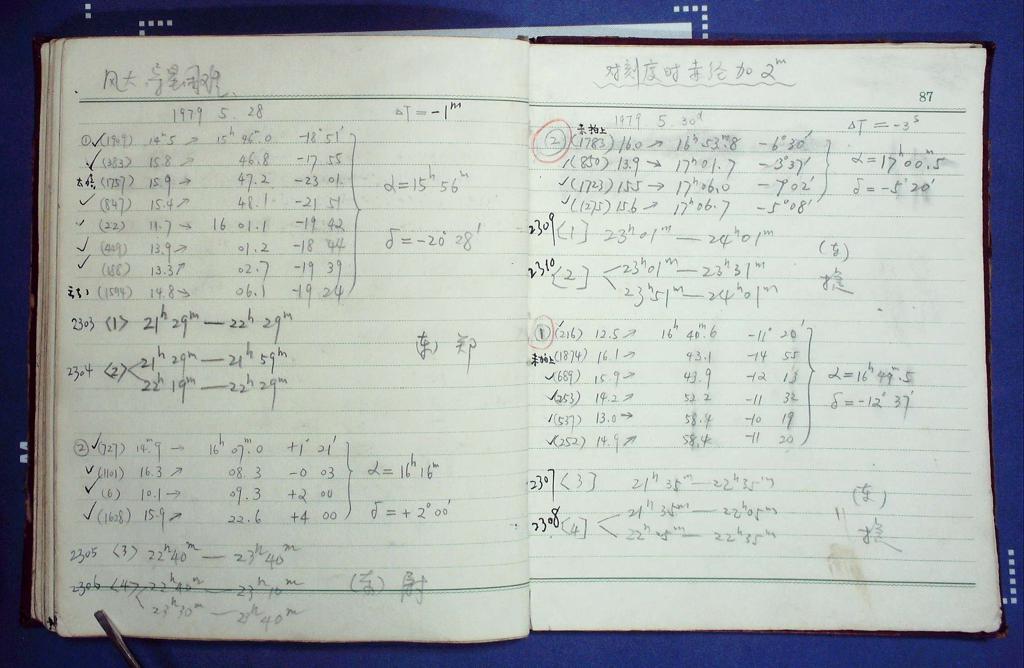 风大 导星困难
1979 5. 28 ΔT = -1ᵐ
① ✓(1909) 14ᵐ5 → 15ʰ 46ᵐ.0 -18°51'
✓(383) 15.8 ↗ 46.8 -17 55
(1757) 15.9 → 47.2 -23 01 α = 15ʰ 56ᵐ
✓(847) 15.4 ↗ 48.1 -21 51
✓(22) 11.7 → 16 01.1 -19 42
✓(449) 13.9 ↗ 01.2 -18 44 δ = -20° 28'
✓(188) 13.3 ↗ 02.7 -19 39
(1594) 14.8 → 06.1 -19 24
2303 〈1〉 21ʰ 29ᵐ — 22ʰ 29ᵐ
(东) 郑
2304 〈2〉 21ʰ 29ᵐ — 21ʰ 59ᵐ
22ʰ 19ᵐ — 22ʰ 29ᵐ
② ✓(727) 14ᵐ.9 → 16ʰ 07ᵐ.0 +1° 21'
✓(1101) 16.3 ↗ 08.3 -0 03 α = 16ʰ 16ᵐ
✓(6) 10.1 → 09.3 +2 00
✓(1628) 15.9 ↗ 22.6 +4 00 δ = +2° 00'
2305 〈3〉 22ʰ40ᵐ — 23ʰ40ᵐ
2306 〈4〉 22ʰ40ᵐ — 23ʰ10ᵐ (东)
23ʰ30ᵐ — 23ʰ40ᵐ
对刻度时赤经加2ᵐ
87
1979 5. 30ᵈ ΔT = -3ˢ
未拍上
② (1783) 16.0 → 16ʰ 53ᵐ.8 -6° 30'
✓(850) 13.9 → 17ʰ 01.7 -3° 37' α = 17ʰ 00ᵐ.5
✓(1723) 15.5 → 17ʰ 06.0 -7° 02' δ = -5° 20'
✓(1275) 15.6 → 17ʰ 06.7 -5° 08'
2309 [1] 23ʰ 01ᵐ — 24ʰ 01ᵐ
(东)
2310 [2] 23ʰ01ᵐ — 23ʰ31ᵐ
23ʰ51ᵐ — 24ʰ01ᵐ
① (216) 12.5 ↗ 16ʰ 40ᵐ.6 -11° 20'
未拍上 (1874) 16.1 → 43.1 -14 55
✓(689) 15.9 ↗ 43.9 -12 13 α = 16ʰ 49ᵐ.5
✓(253) 14.2 ↗ 52.2 -11 32 δ = -12° 37'
✓(537) 13.0 → 58.4 -10 19
✓(252) 14.9 ↗ 58.4 -11 20
2307 〈3] 21ʰ 35ᵐ — 22ʰ 35ᵐ
(东)
2308 [4] 21ʰ 35ᵐ — 22ʰ 05ᵐ
22ʰ 25ᵐ — 22ʰ 35ᵐ